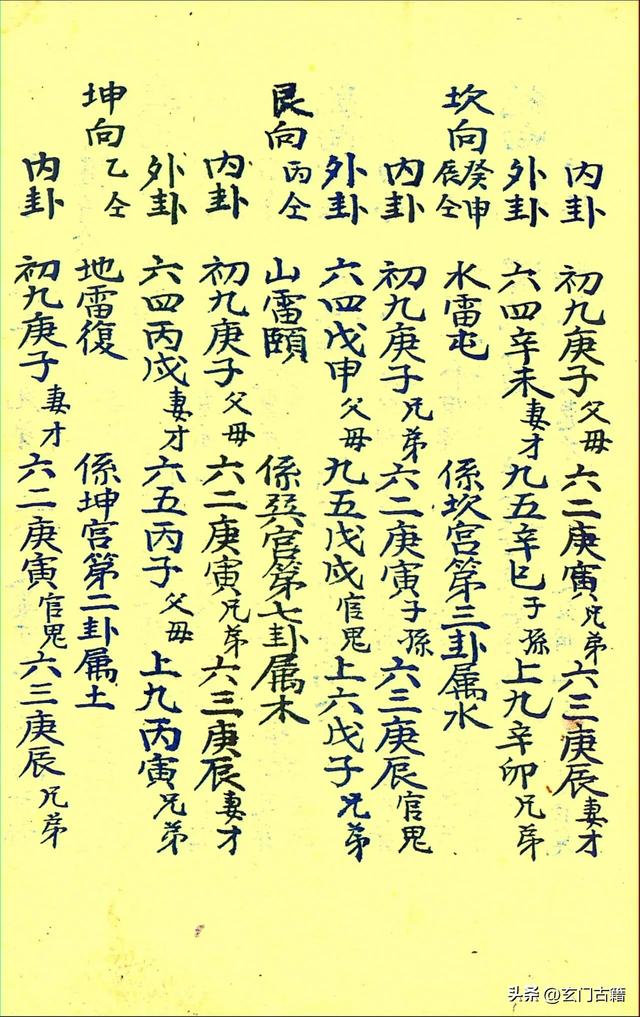 内卦 初九庚子父母 六二庚寅兄弟 六三庚辰妻才
外卦 六四辛未妻才 九五辛巳子孫 上九辛卯兄弟
坎向癸申辰仝 水雷屯 係坎宫第三卦属水
内卦 初九庚子兄弟 六二庚寅子孫 六三庚辰官鬼
外卦 六四戊申父母 九五戊戌官鬼 上六戊子兄弟
艮向丙仝 山雷頤 係巽宫第七卦属木
内卦 初九庚子父母 六二庚寅兄弟 六三庚辰妻才
外卦 六四丙戌妻才 六五丙子父母 上九丙寅兄弟
坤向乙仝 地雷復 係坤宫第二卦属土
内卦 初九庚子妻才 六二庚寅官鬼 六三庚辰兄弟
头条 @玄门古籍